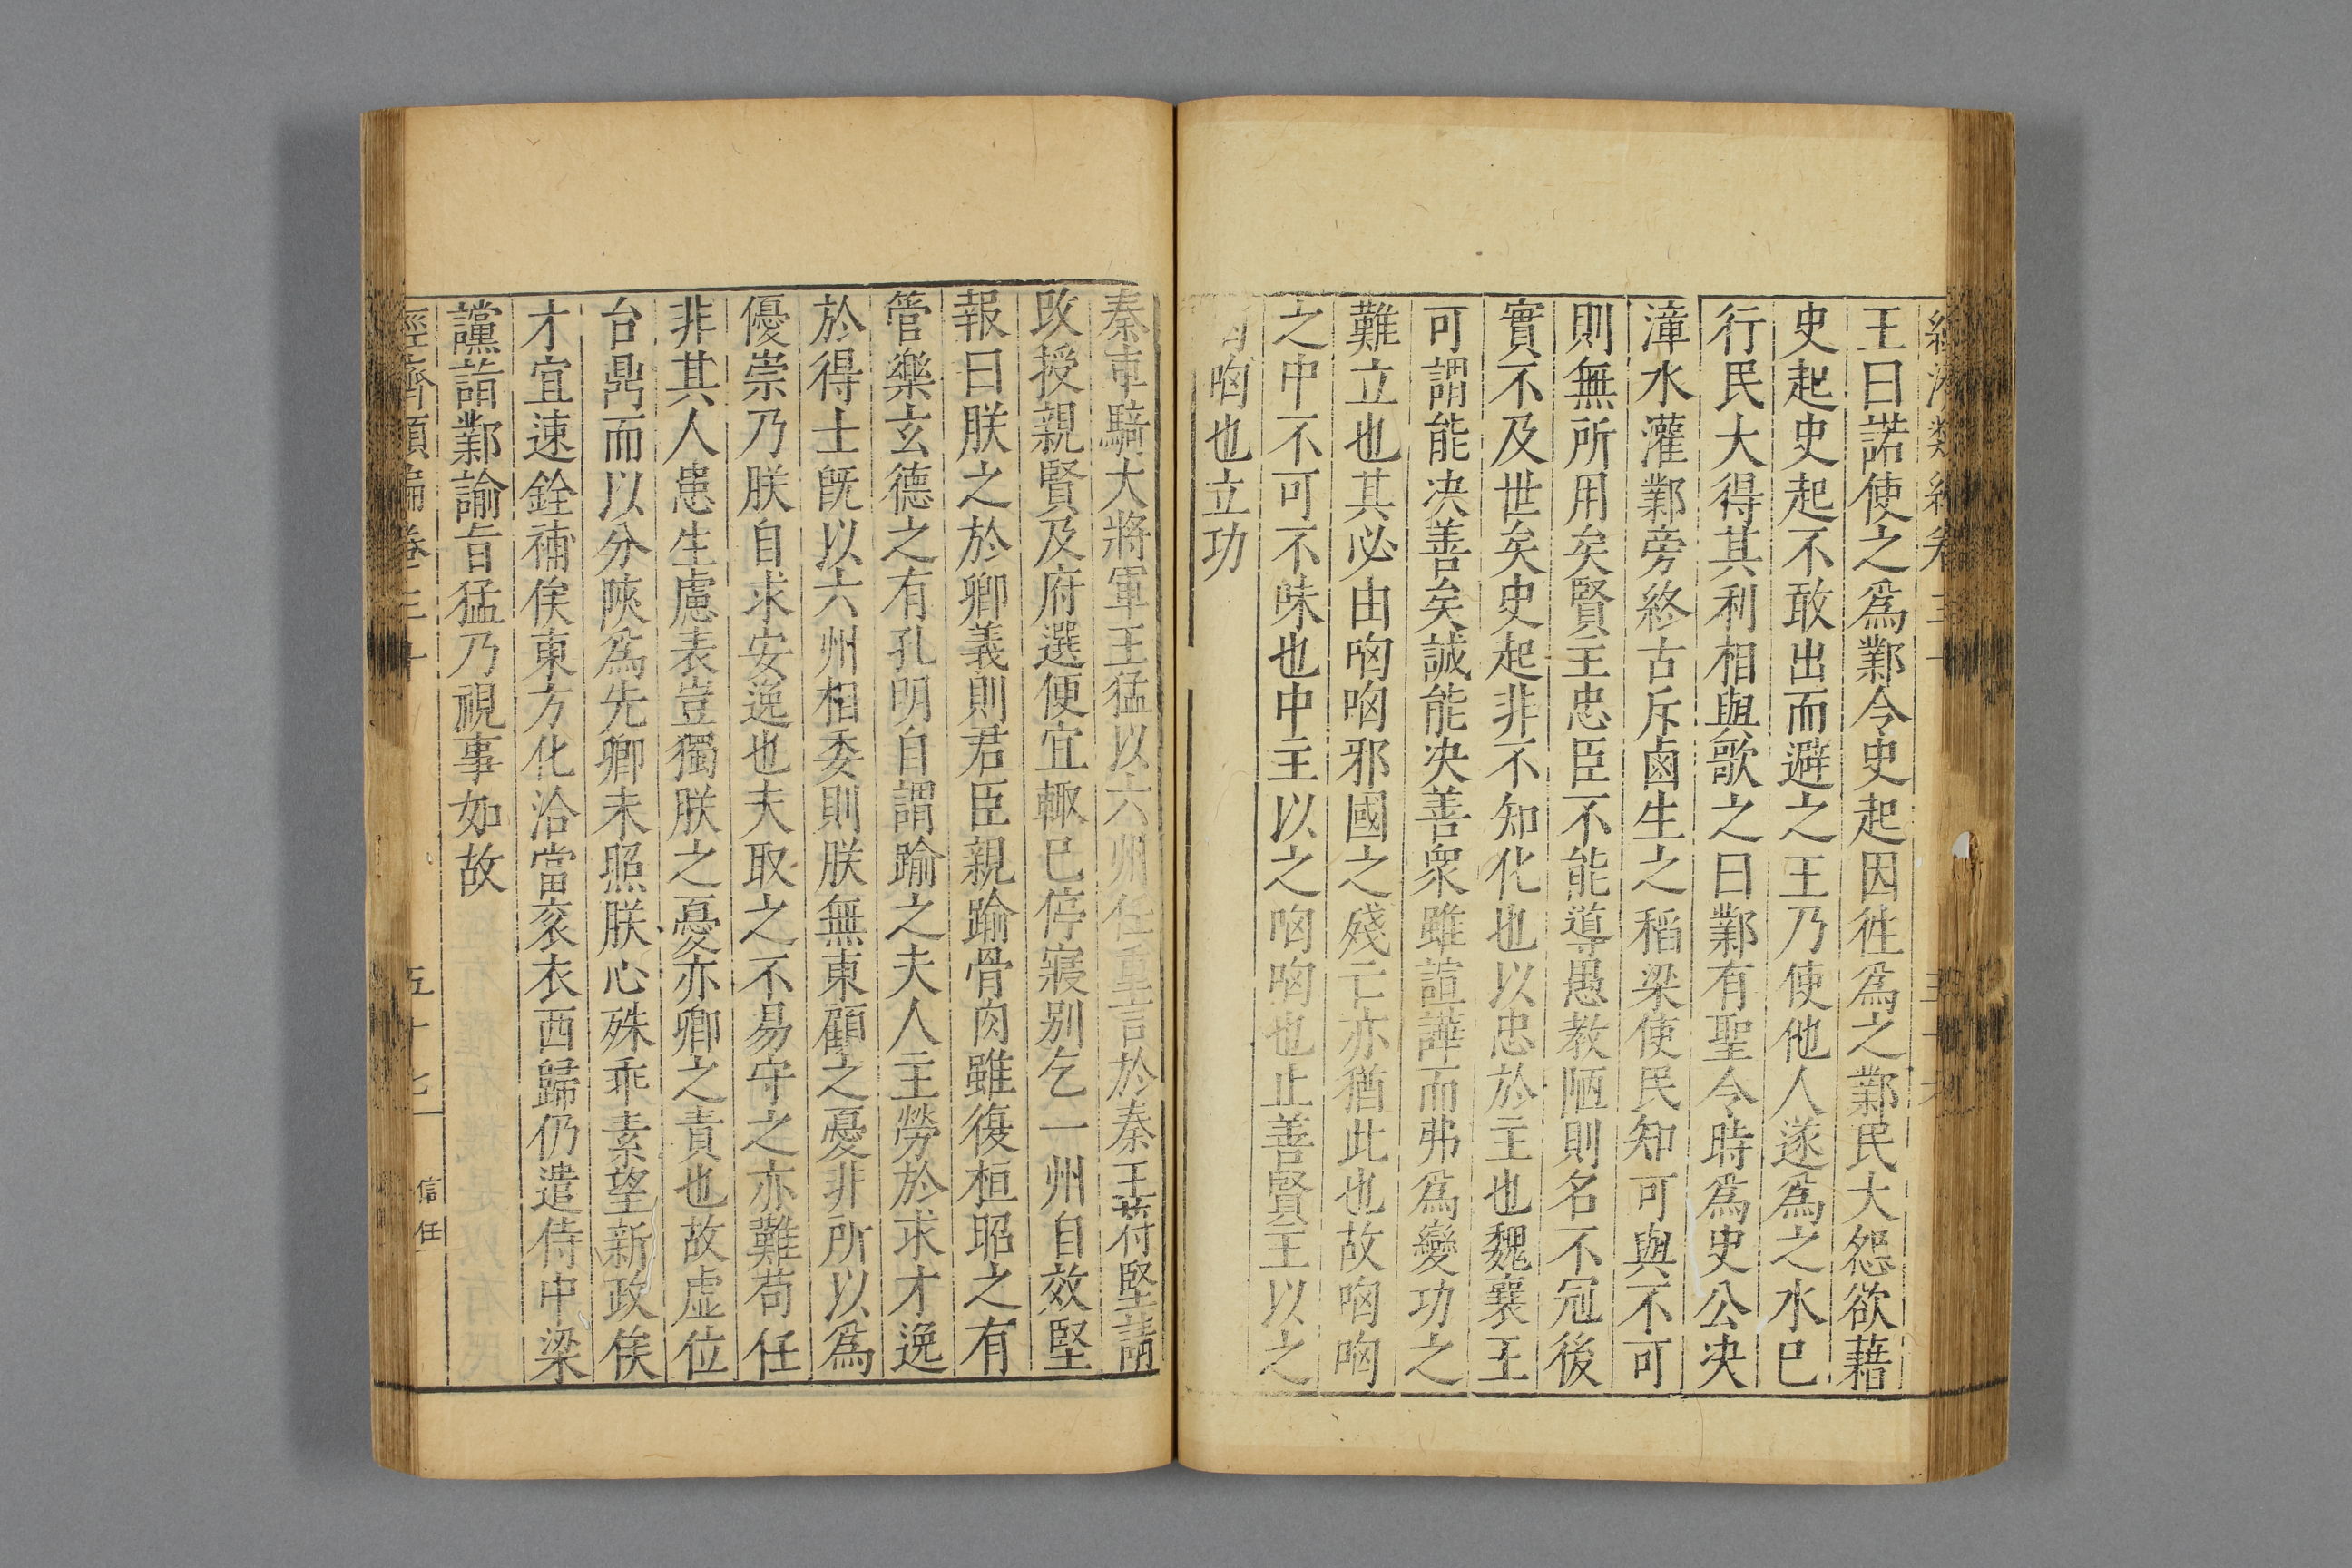 王曰諾使之爲鄴令史起因徃爲之鄴民大怨欲藉
史起史起不敢出而避之王乃使他人遂爲之水已
行民大得其利相與歌之曰鄴有聖令時爲史公决
漳水灌鄴旁終古斥鹵生之稻梁使民知可與不可
則無所用矣賢主忠臣不能導愚教陋則名不冠後
實不及世矣史起非不知化也以忠於主也魏襄王
可謂能决善矣誠能决善衆雖諠譁而弗爲變功之
難立也其必由哅哅邪國之殘亡亦猶此也故哅哅
之中不可不味也中主以之哅哅也止善賢主以之
哅也立功
秦車騎大將軍王猛以六州任重言於秦王苻堅請
改授親賢及府選便宜輙已停寢别乞一州自效堅
報曰朕之於卿義則君臣親踰骨肉雖復桓昭之有
管樂玄德之有孔明自謂踰之夫人主勞於求才逸
於得士旣以六州相委則朕無東顧之憂非所以爲
優崇乃朕自求安逸也夫取之不易守之亦難苟任
非其人患生慮表豈獨朕之憂亦卿之責也故虚位
台鼎而以分陜爲先卿未照朕心殊乖素望新政俟
才宜速銓補俟東方化洽當衮衣西歸仍遣侍中梁
讜詣鄴諭旨猛乃視事如故
經濟類編卷三十 五十七 信任